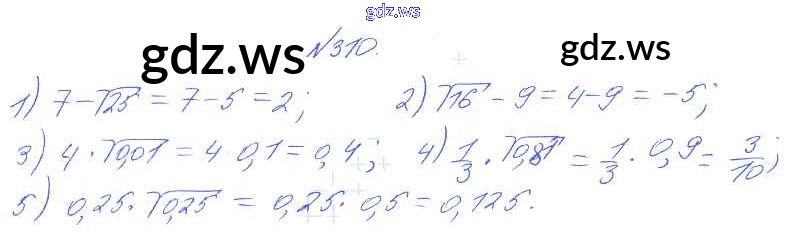 gdz.ws
№310.
gdz.ws gdz.ws
1) 7 - √25 = 7 - 5 = 2; 2) √16 - 9 = 4 - 9 = -5;
3) 4 · √0,01 = 4 · 0,1 = 0,4; 4) 1/3 · √0,81 = 1/3 · 0,9 = 3/10;
5) 0,25 · √0,25 = 0,25 · 0,5 = 0,125.